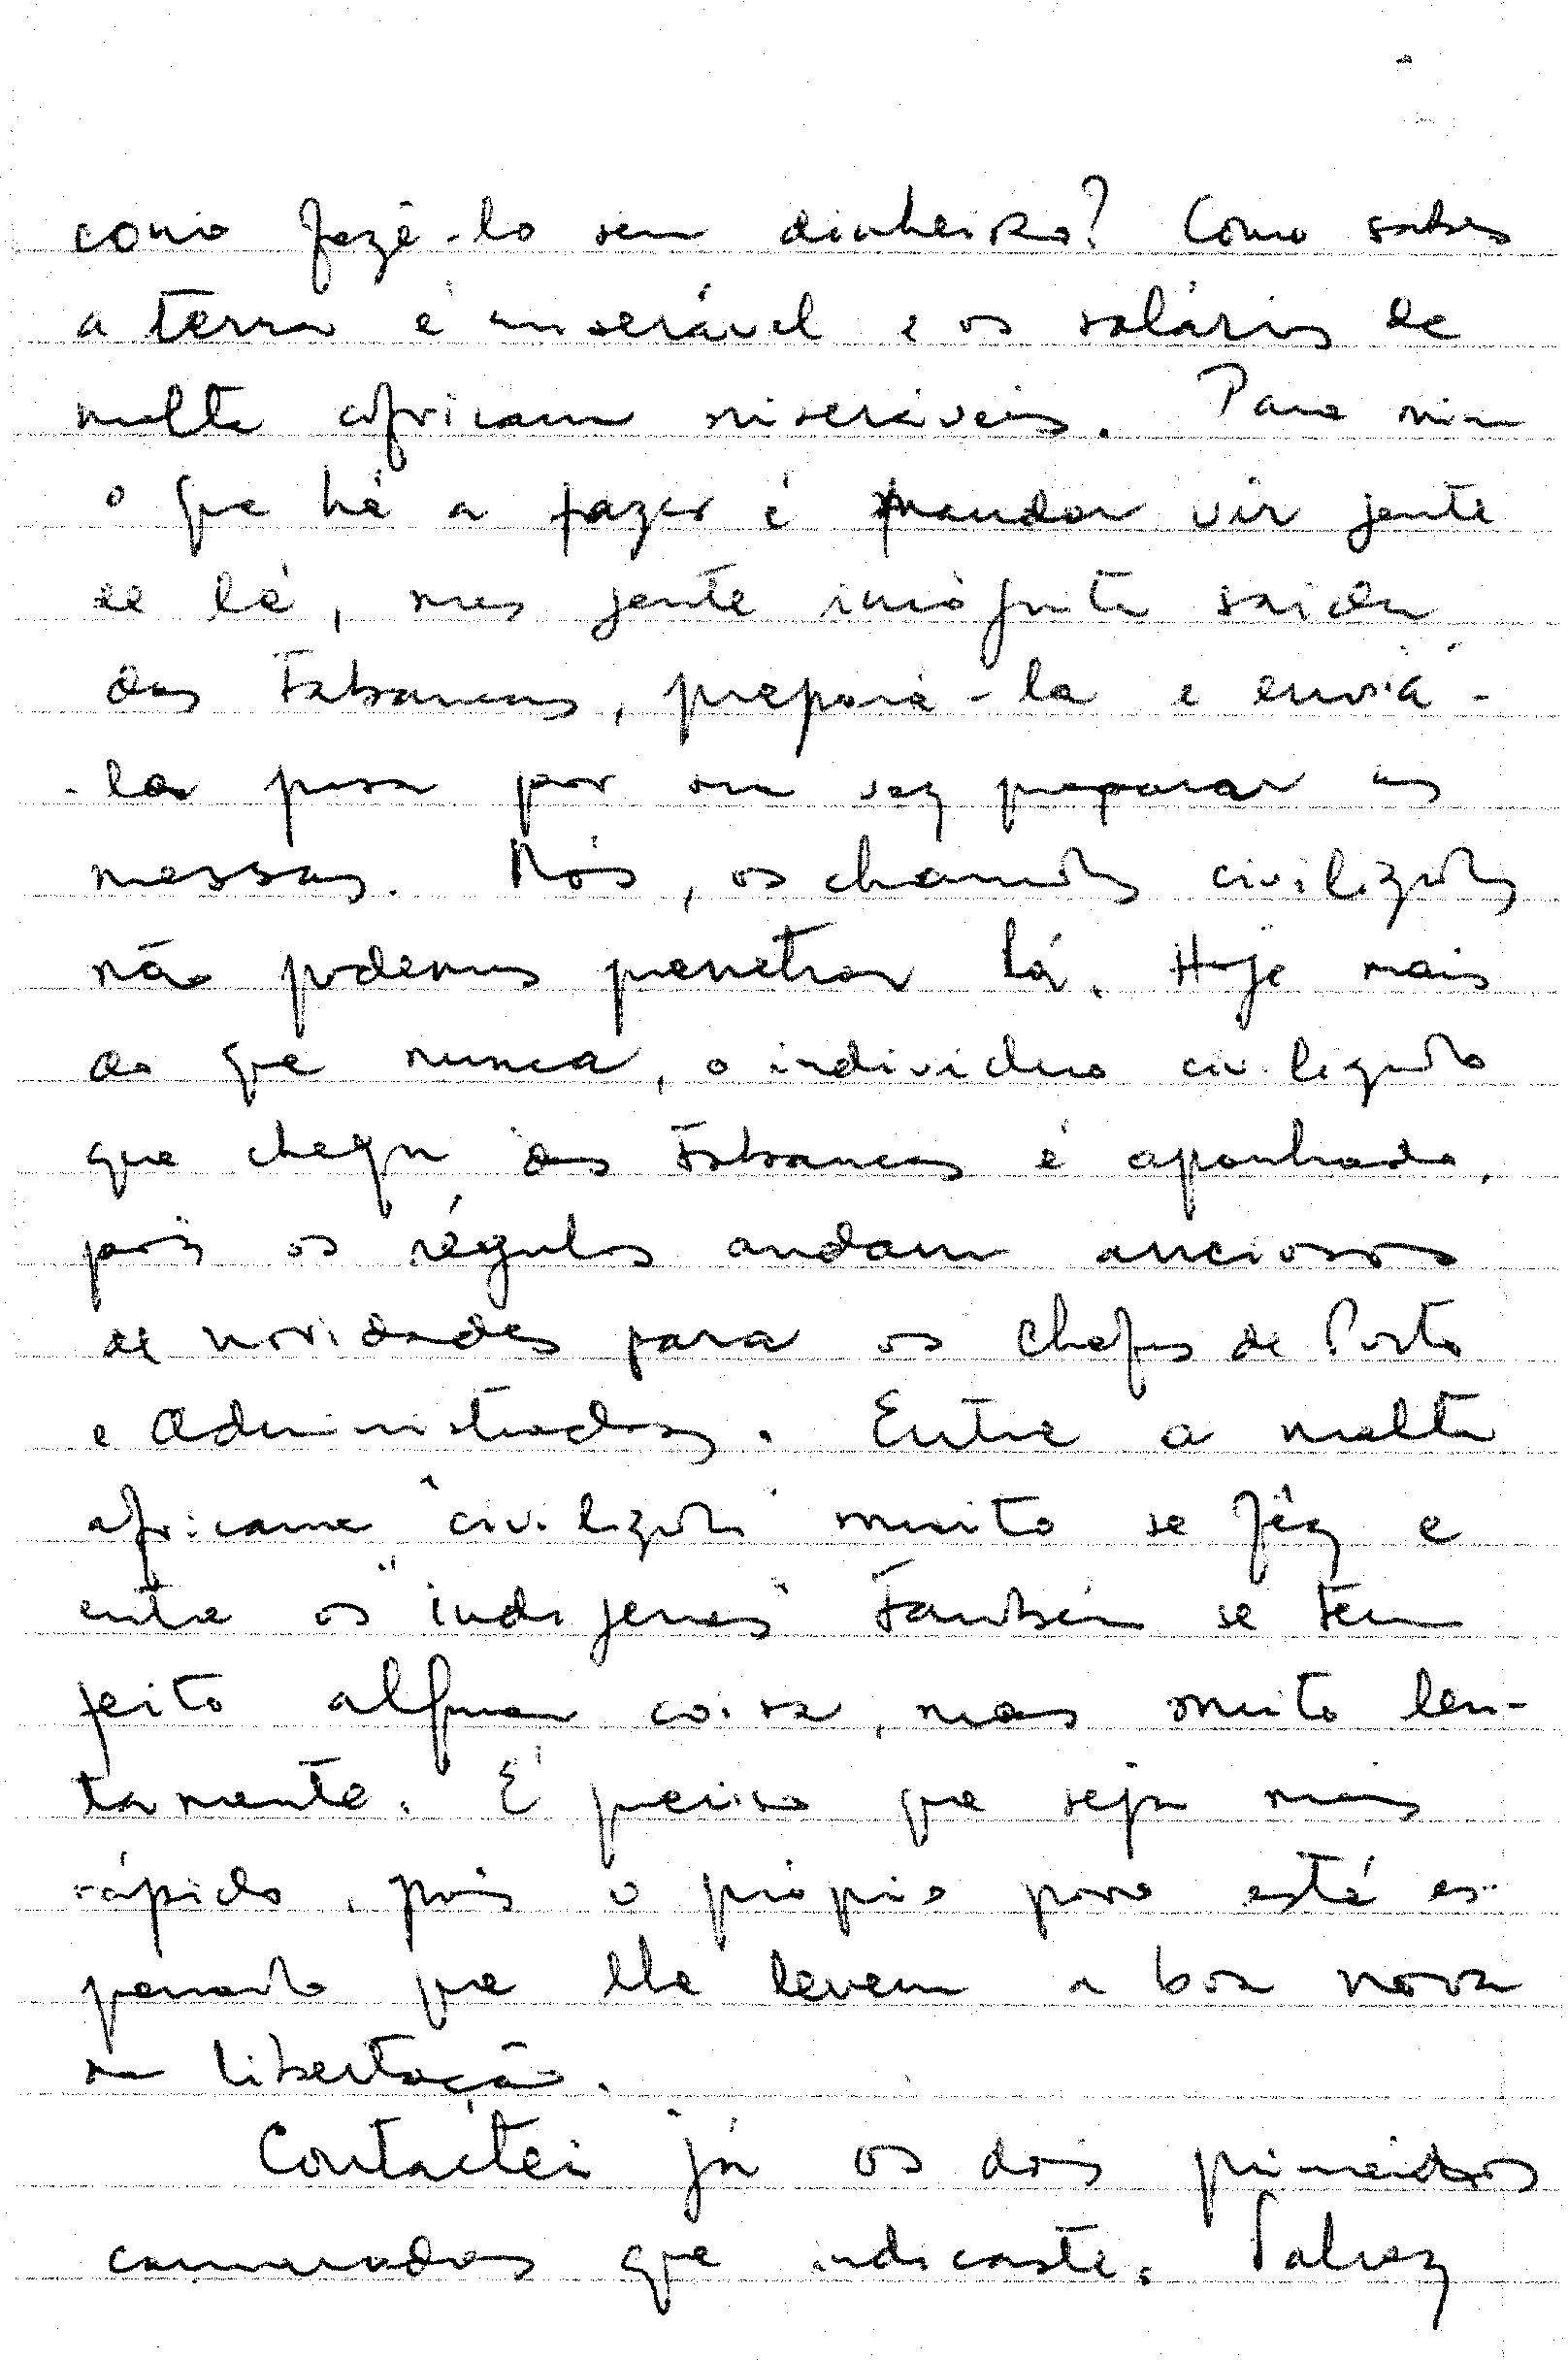 como fazê-lo sem dinheiro? Como sabes
a terra é miserável e os salários de
malta africana miseráveis. Para mim
o que há a fazer é mandar vir gente
de lá, mas gente incógnita saida
das tabancas, prepará-la e enviá-
-la para por sua vez preparar as
massas. Nós, os chamados civilizados
não podemos penetrar lá. Hoje mais
do que nunca, o individuo civilizado
que chega às tabancas é apanhado,
pois os régulos andam anciosos
de novidades para os Chefes de Posto
e Administradores. Entre a malta
africana "civilizada" muito se fêz e
entre os "indigenas" também se tem
feito alguma coisa, mas muito len-
tamente. É preciso que seja mais
rápido, pois o próprio povo está es-
perando que lhe levem a boa nova
da libertação.
Contáctei já os dois primeiros
camaradas que indicaste. Talvez